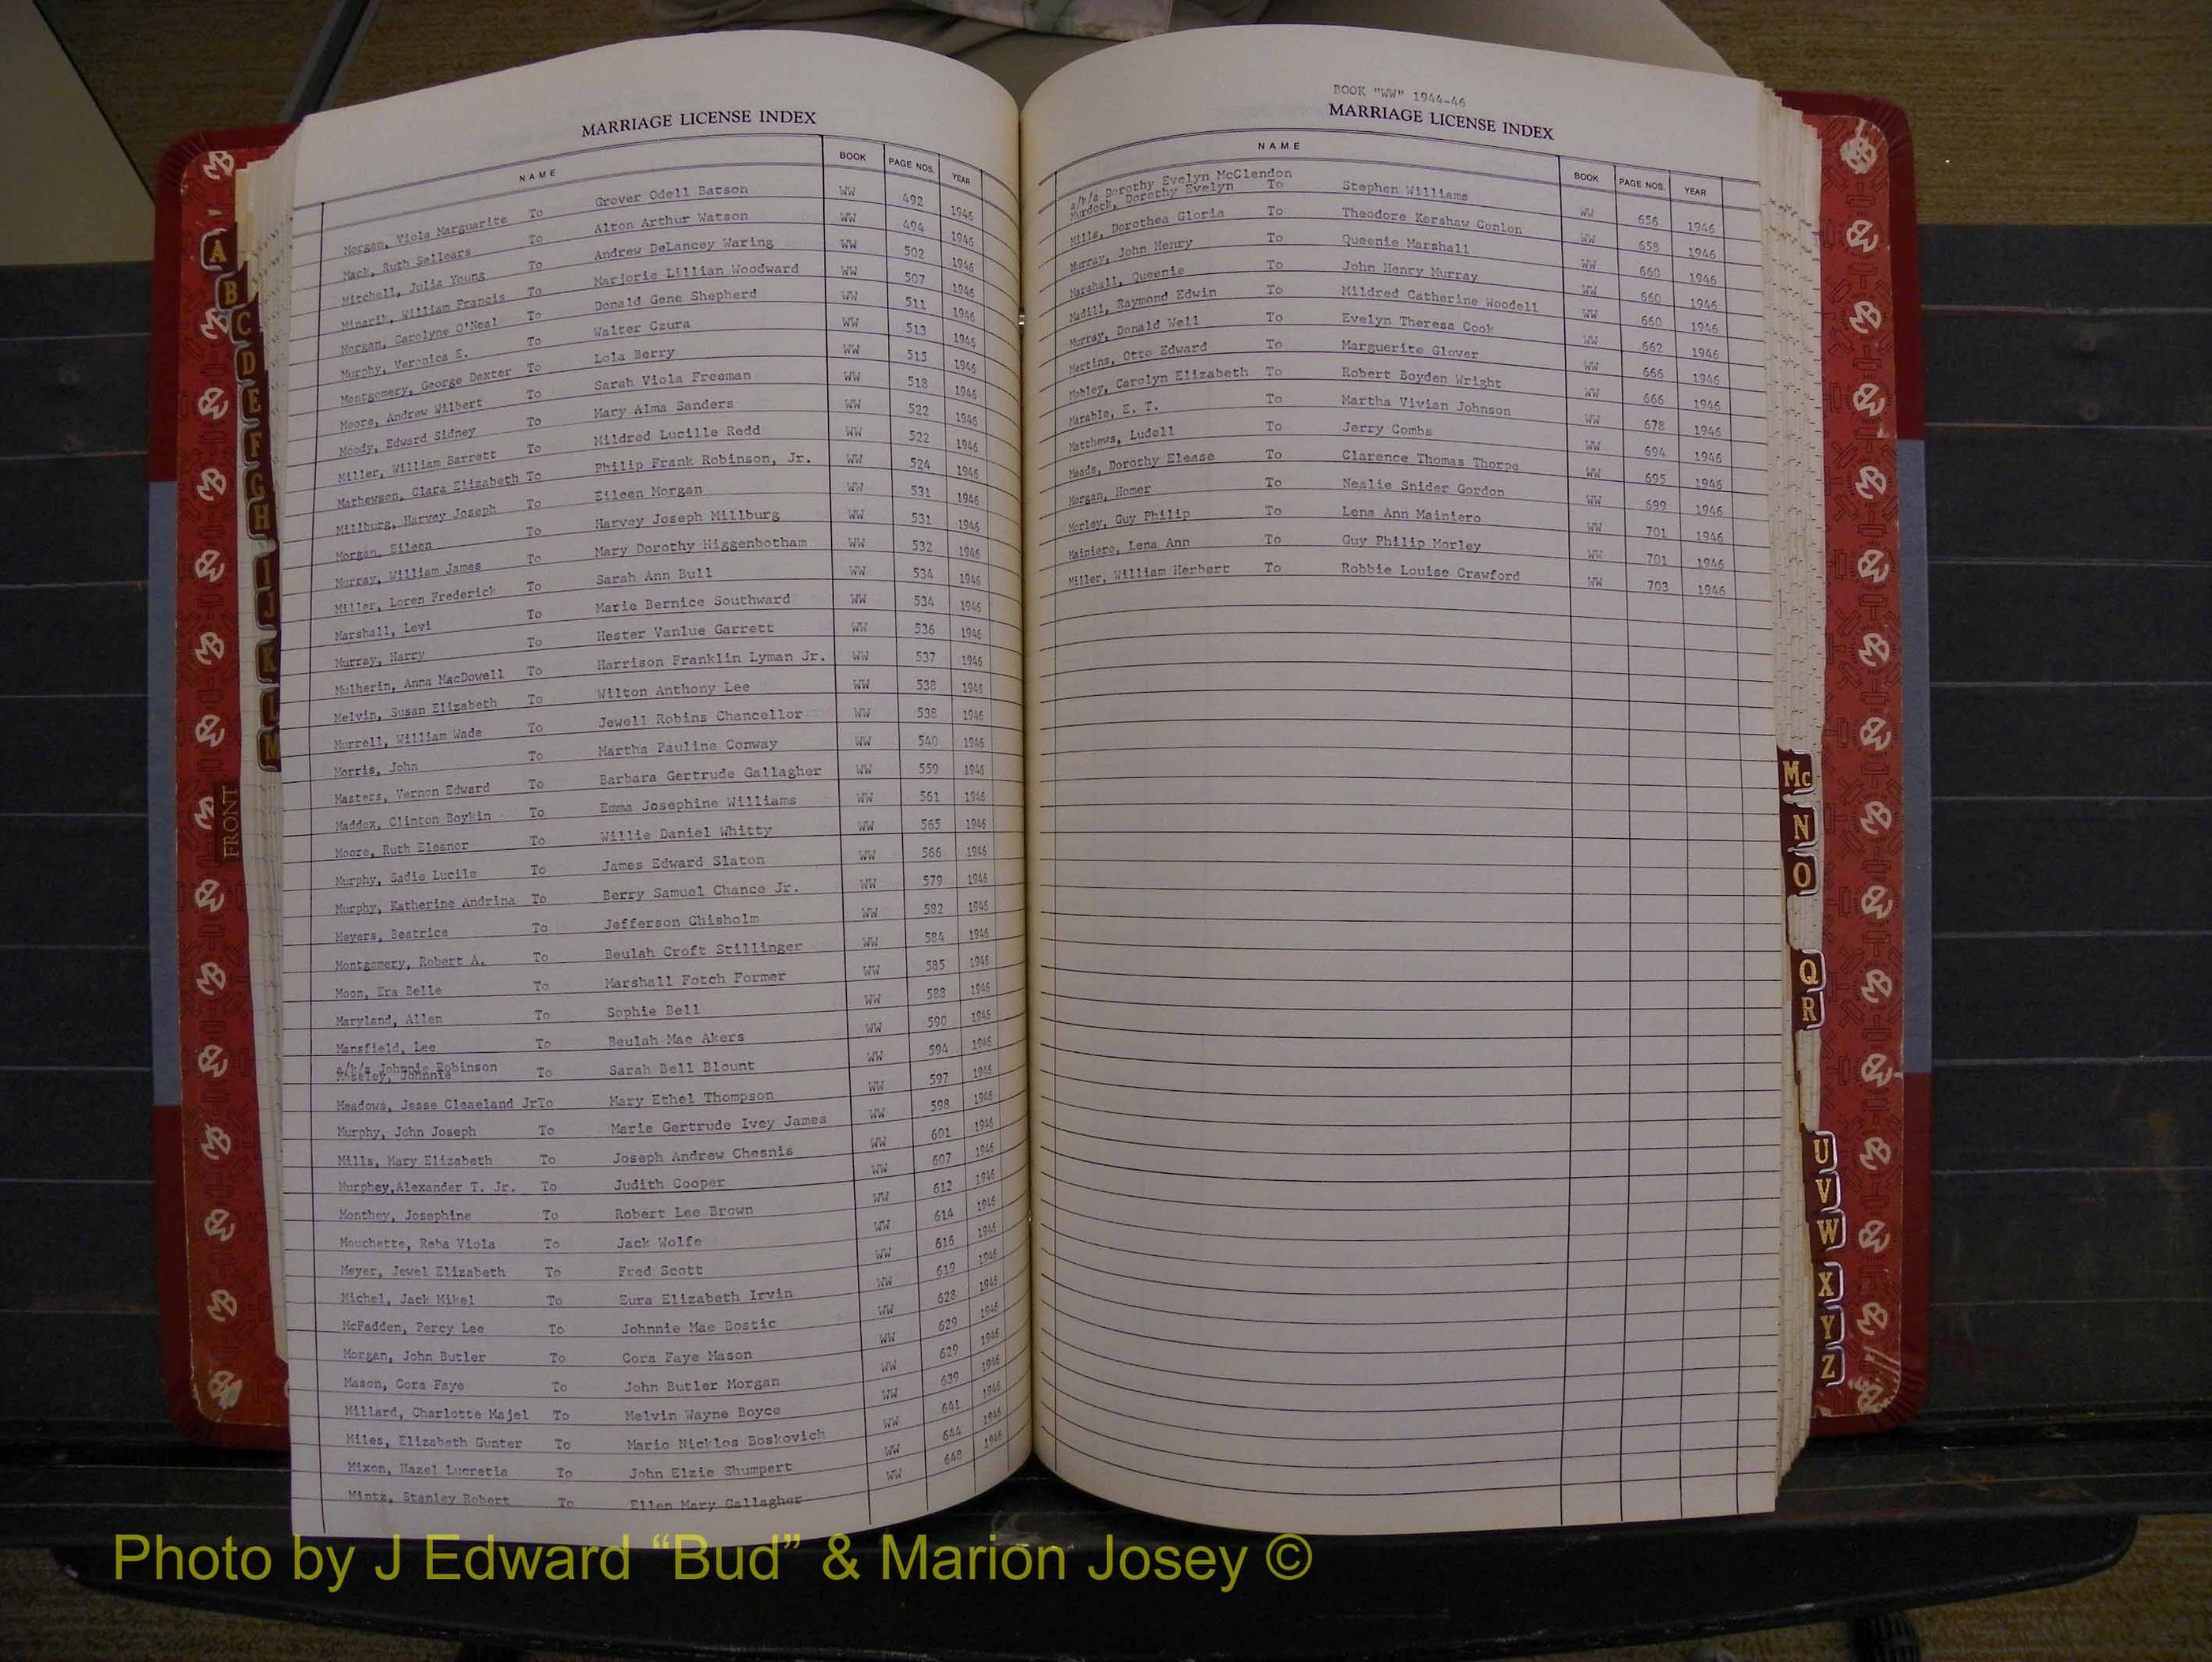 MARRIAGE LICENSE INDEX
NAME BOOK PAGE NOS. YEAR
Morgan, Viola Marguarite To Grover Odell Batson WW 492 1946
Mack, Ruth Sellears To Alton Arthur Watson WW 494 1946
Mitchell, Julia Young To Andrew DeLancey Waring WW 502 1946
Minarik, William Francis To Marjorie Lillian Woodward WW 507 1946
Morgan, Carolyne O'Neal To Donald Gene Shepherd WW 511 1946
Murphy, Veronica E. To Walter Czura WW 513 1946
Montgomery, George Dexter To Lola Berry WW 515 1946
Moore, Andrew Wilbert To Sarah Viola Freeman WW 518 1946
Moody, Edward Sidney To Mary Alma Sanders WW 522 1946
Miller, William Barrett To Mildred Lucille Redd WW 522 1946
Mathewson, Clara Elizabeth To Philip Frank Robinson, Jr. WW 524 1946
Millburg, Harvey Joseph To Eileen Morgan WW 531 1946
Morgan, Eileen To Harvey Joseph Millburg WW 531 1946
Murray, William James To Mary Dorothy Higgenbotham WW 532 1946
Miller, Loren Frederick To Sarah Ann Bull WW 534 1946
Marshall, Levi To Marie Bernice Southward WW 534 1946
Murray, Harry To Hester Vanlue Garrett WW 536 1946
Mulherin, Anna MacDowell To Harrison Franklin Lyman Jr. WW 537 1946
Melvin, Susan Elizabeth To Wilton Anthony Lee WW 538 1946
Murrell, William Wade To Jewell Robins Chancellor WW 538 1946
Morris, John To Martha Pauline Conway WW 540 1946
Masters, Vernon Edward To Barbara Gertrude Gallagher WW 559 1946
Maddox, Clinton Boykin To Emma Josephine Williams WW 561 1946
Moore, Ruth Eleanor To Willie Daniel Whitty WW 565 1946
Murphy, Sadie Lucile To James Edward Slaton WW 566 1946
Murphy, Katherine Andrina To Berry Samuel Chance Jr. WW 579 1946
Meyers, Beatrice To Jefferson Chisholm WW 582 1946
Montgomery, Robert A. To Beulah Croft Stillinger WW 584 1946
Moon, Era Belle To Marshall Fotch Former WW 585 1946
Maryland, Allen To Sophie Bell WW 588 1946
Mansfield, Lee To Beulah Mae Akers WW 590 1946
a/k/a Johnnie Robinson
Moseley, Johnnie To Sarah Bell Blount WW 594 1946
Meadows, Jesse Cleaeland JrTo Mary Ethel Thompson WW 597 1946
Murphy, John Joseph To Marie Gertrude Ivey James WW 598 1946
Mills, Mary Elizabeth To Joseph Andrew Chesnis WW 601 1946
Murphey,Alexander T. Jr. To Judith Cooper WW 607 1946
Monthey, Josephine To Robert Lee Brown WW 612 1946
Mouchette, Reba Viola To Jack Wolfe WW 614 1946
Meyer, Jewel Elizabeth To Fred Scott WW 616 1946
Michel, Jack Mikel To Eura Elizabeth Irvin WW 619 1946
McFadden, Percy Lee To Johnnie Mae Bostic WW 628 1946
Morgan, John Butler To Cora Faye Mason WW 629 1946
Mason, Cora Faye To John Butler Morgan WW 629 1946
Millard, Charlotte Majel To Melvin Wayne Boyce WW 639 1946
Miles, Elizabeth Gunter To Mario Nicklos Boskovich WW 641 1946
Mixon, Hazel Lucretia To John Elzie Shumpert WW 644 1946
Mintz, Stanley Robert To Ellen Mary Gallagher WW 648 1946
BOOK "WW" 1944-46
MARRIAGE LICENSE INDEX
NAME BOOK PAGE NOS. YEAR
a/k/a Dorothy Evelyn McClendon
Murdock, Dorothy Evelyn To Stephen Williams WW 656 1946
Mills, Dorothea Gloria To Theodore Kershaw Conlon WW 658 1946
Murray, John Henry To Queenie Marshall WW 660 1946
Marshall, Queenie To John Henry Murray WW 660 1946
Madill, Raymond Edwin To Mildred Catherine Woodell WW 660 1946
Murray, Donald Well To Evelyn Theresa Cook WW 662 1946
Mertins, Otto Edward To Marguerite Glover WW 666 1946
Mobley, Carolyn Elizabeth To Robert Boyden Wright WW 666 1946
Marable, E. T. To Martha Vivian Johnson WW 678 1946
Matthews, Ludell To Jerry Combs WW 694 1946
Meads, Dorothy Elease To Clarence Thomas Thorpe WW 695 1946
Morgan, Homer To Nealie Snider Gordon WW 699 1946
Morley, Guy Philip To Lena Ann Mainiero WW 701 1946
Mainiero, Lena Ann To Guy Philip Morley WW 701 1946
Miller, William Herbert To Robbie Louise Crawford WW 703 1946
A
B
C
D
E
F
G
H
I
J
K
L
M
FRONT
Mc
N
O
Q
R
U
V
W
X
Y
Z
Photo by J Edward “Bud” & Marion Josey ©